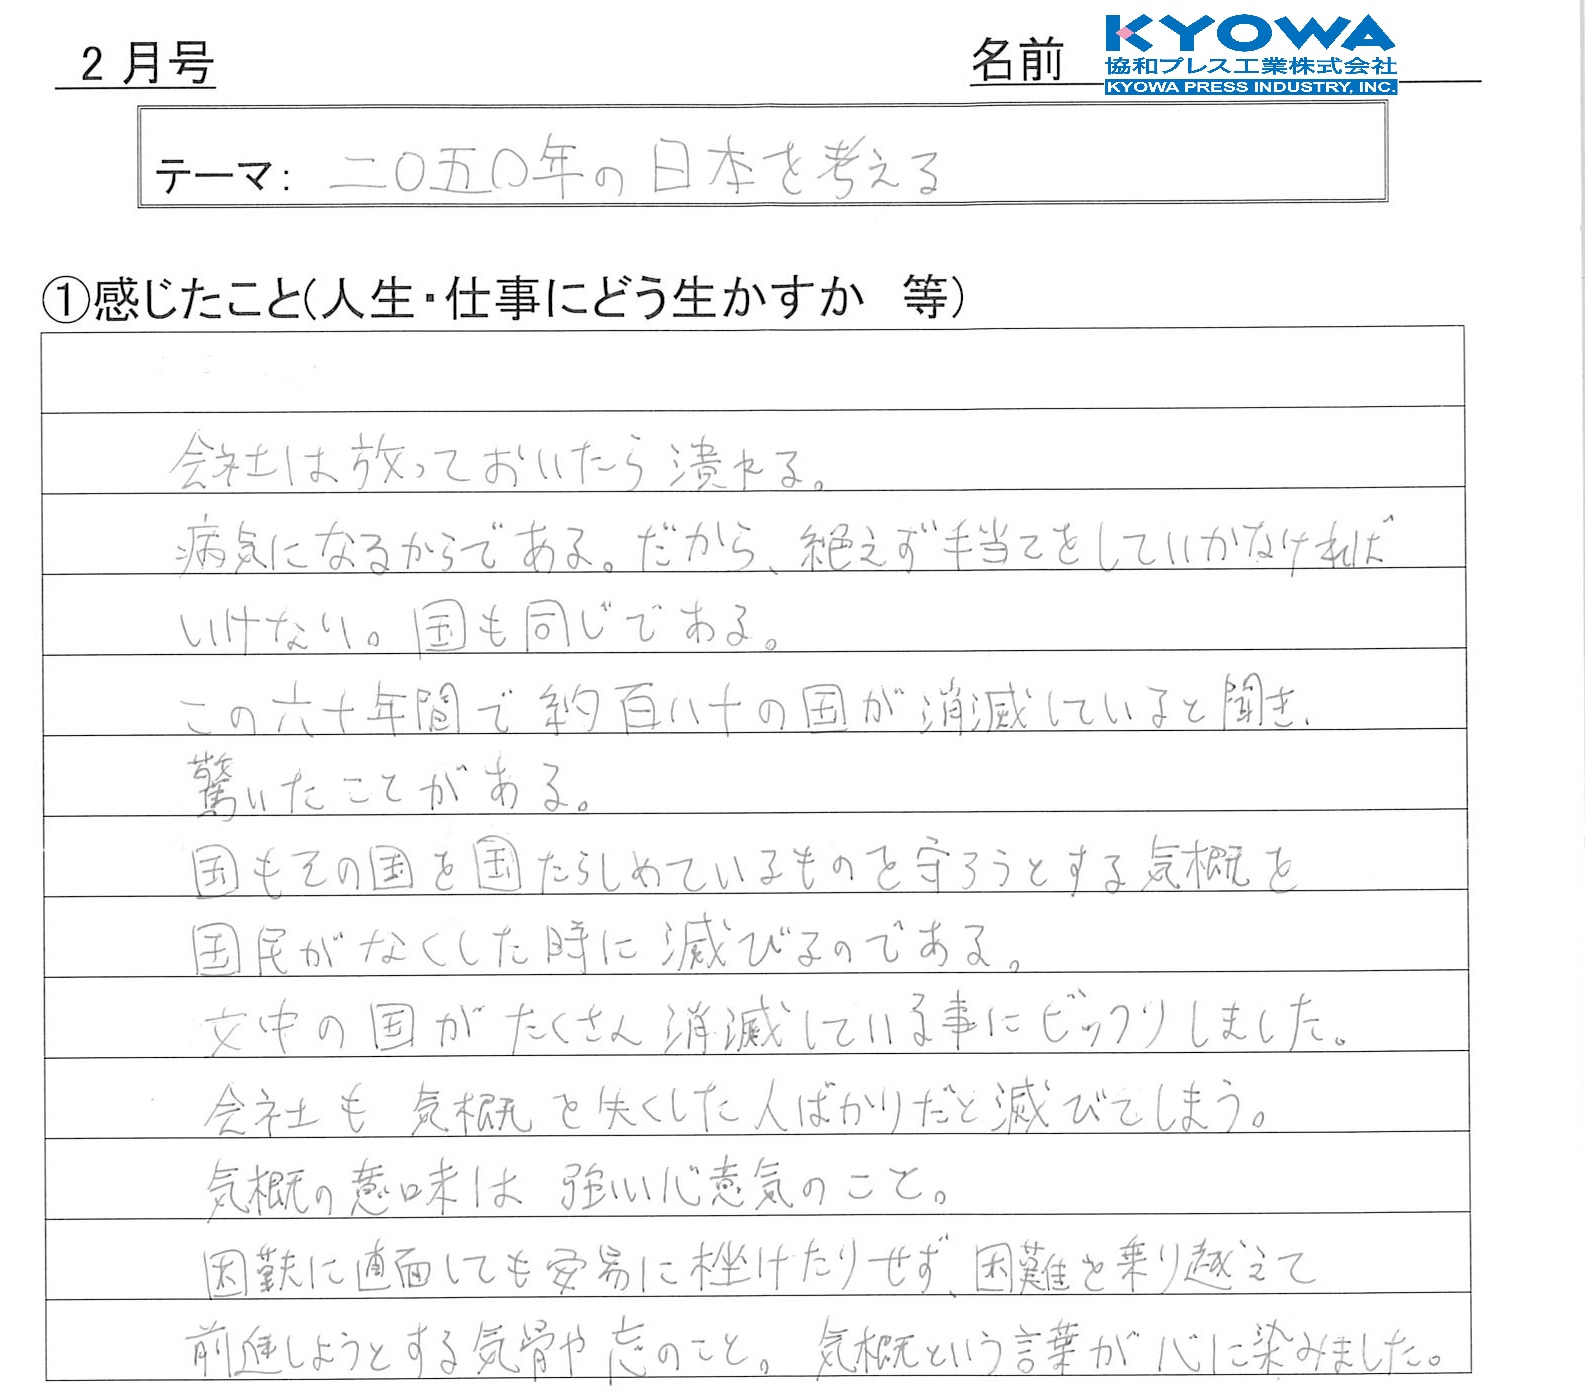 2月号
名前
KYOWA
協和プレス工業株式会社
KYOWA PRESS INDUSTRY, INC.
テーマ: 二〇五〇年の日本を考える
①感じたこと(人生・仕事にどう生かすか 等)
会社は放っておいたら潰れる。
病気になるからである。だから、絶えず手当てをしていかなければ
いけない。国も同じである。
この六十年間で約百八十の国が消滅していると聞き、
驚いたことがある。
国もその国を国たらしめているものを守ろうとする気概を
国民がなくした時に滅びるのである。
文中の国がたくさん消滅している事にビックリしました。
会社も気概を失くした人ばかりだと滅びてしまう。
気概の意味は強い心意気のこと。
困難に直面しても安易に挫けたりせず、困難を乗り越えて
前進しようとする気骨や志のこと。気概という言葉が心に染みました。